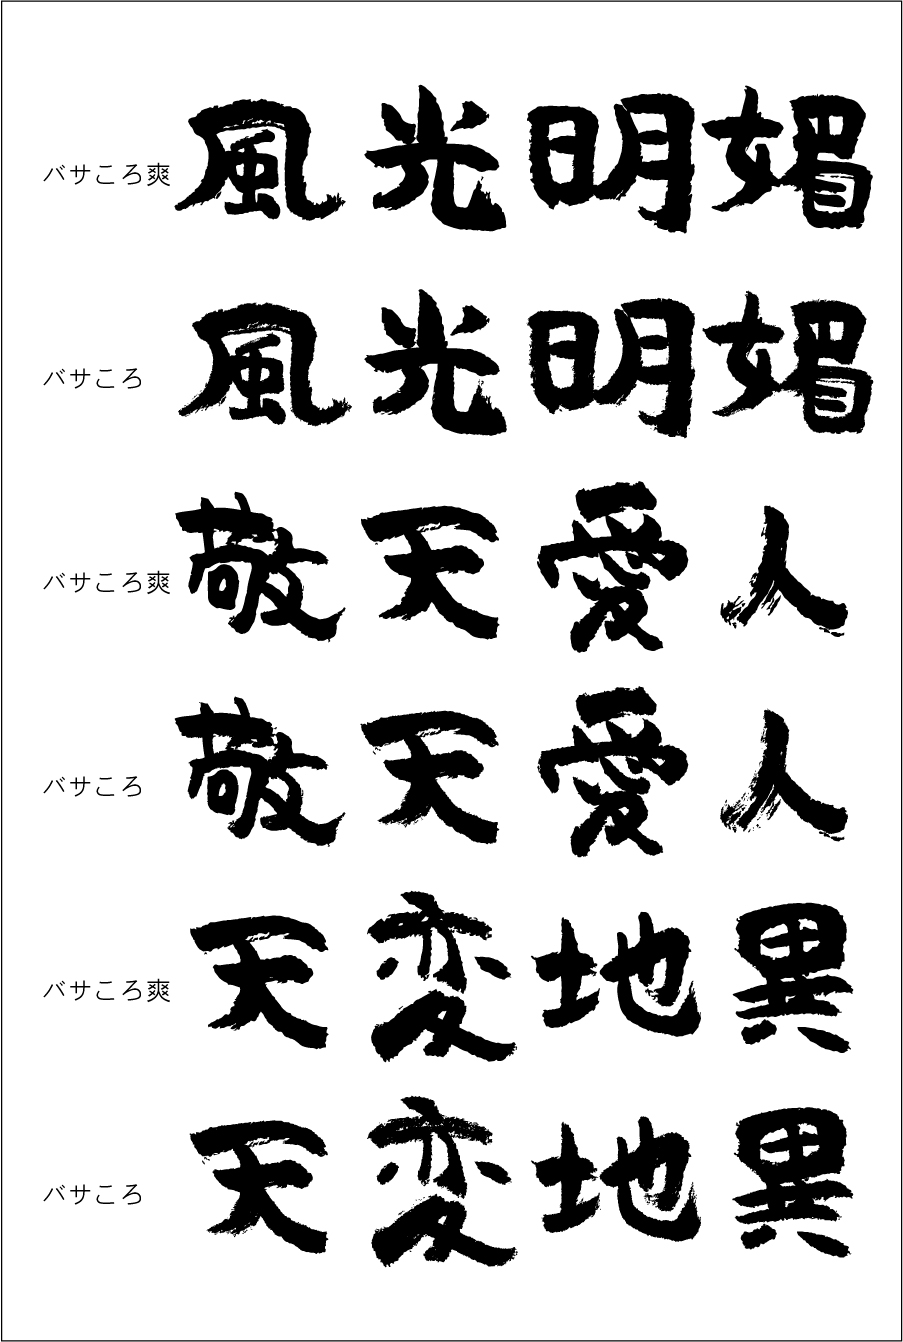 バサころ爽 風光明媚
バサころ 風光明媚
バサころ爽 敬天愛人
バサころ 敬天愛人
バサころ爽 天変地異
バサころ 天変地異